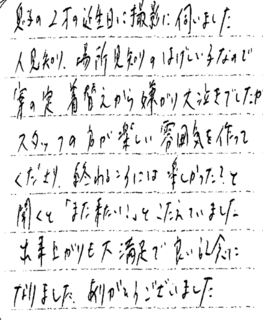 息子の2才の誕生日に撮影に伺いました
人見知り、場所見知りのはげしい子なので
案の定 着替えから嫌がり大泣きでしたが
スタッフの方が楽しい雰囲気を作って
くださり、終わるころには楽しかった?と
聞くと「また来たい!」とこたえていました
出来上がりも大満足で良い記念に
なりました ありがとうございました